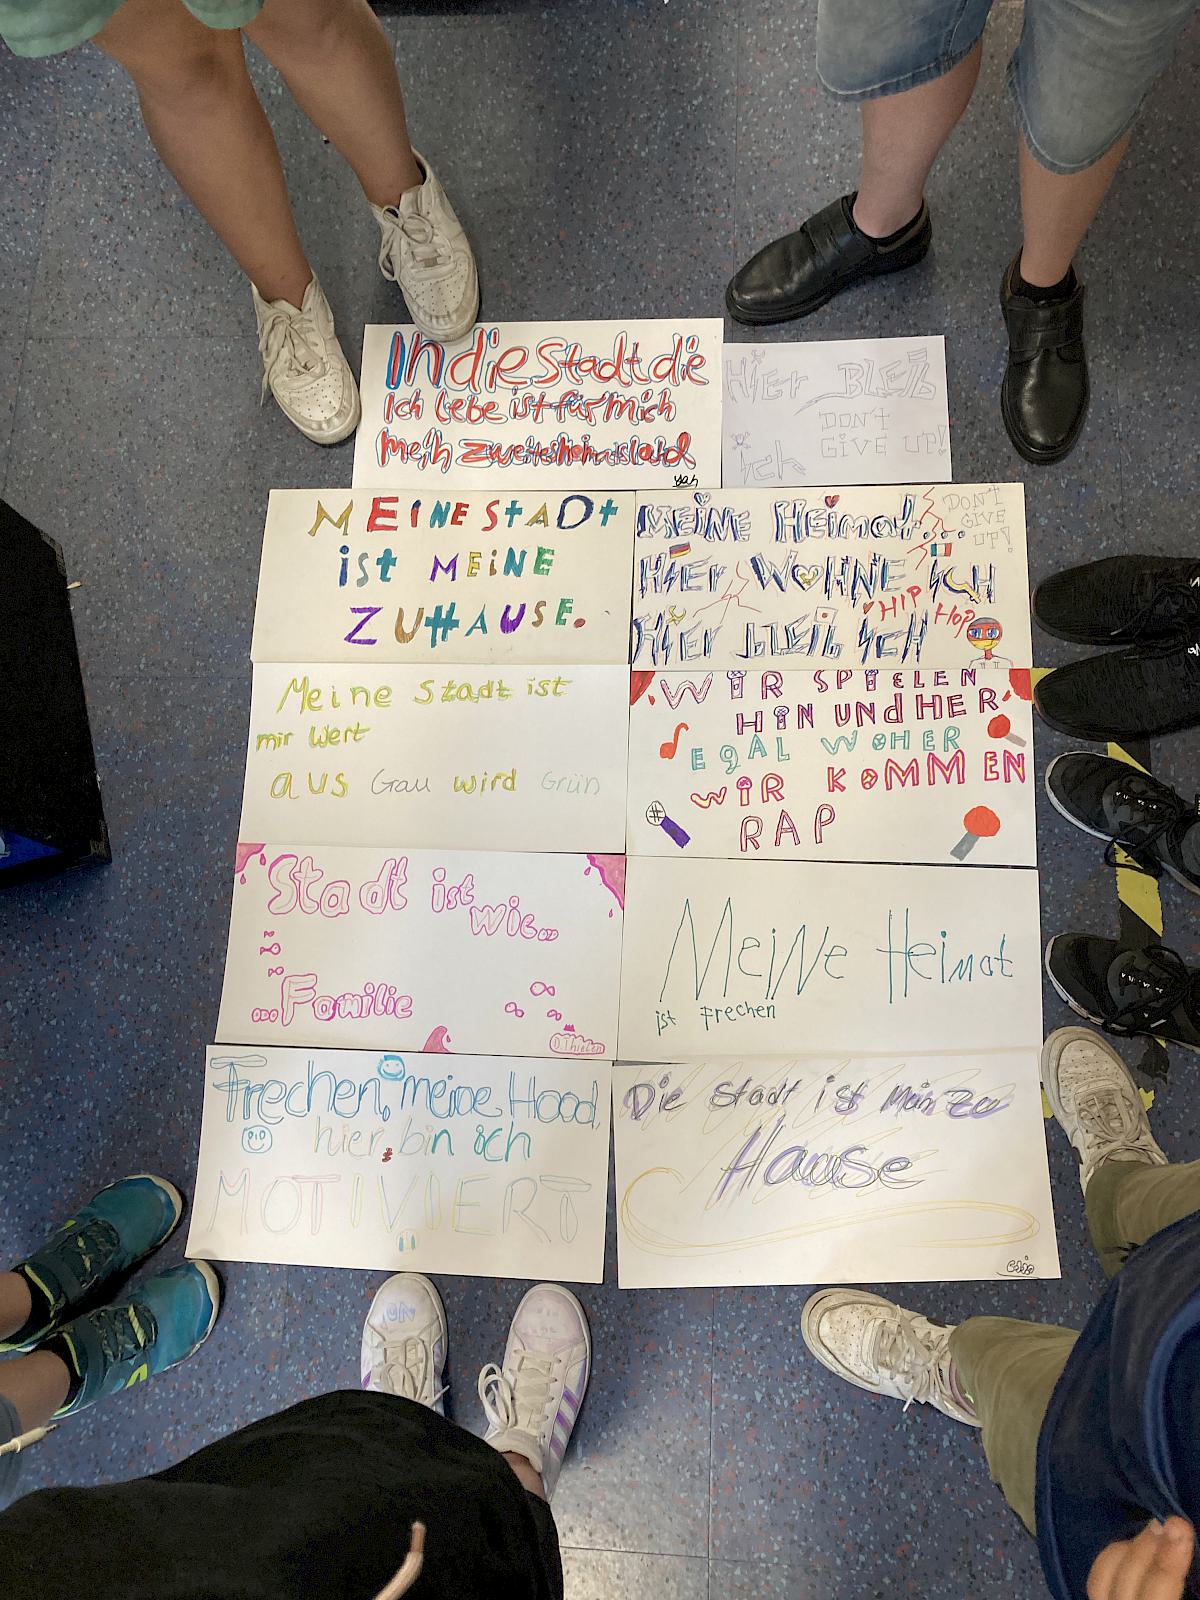 In die Stadt die
Ich lebe ist für mich
mein zweites heimatsland
HiEr BLEib
DON'T
GIVE UP!
ich
MEiNE StADt
ist MEiNE
ZUHAUSE.
MEiNE Heimat...
DON'T
GIVE
UT!
HiEr WOHNE iCH
HIP HOP
HiEr bLEib iCH
Meine Stadt ist
mir Wert
aus Grau wird Grün
WiR SPiELEN
HiN UNd HER
EgAL WOHER
WiR KOMMEN
RAP
Stadt ist
wie...
Familie
D.Thielen
MeiNe Heimat
ist Frechen
Frechen, meine Hood,
hier bin ich
MOTIVIERT
Die Stadt ist Mein zu
Hause